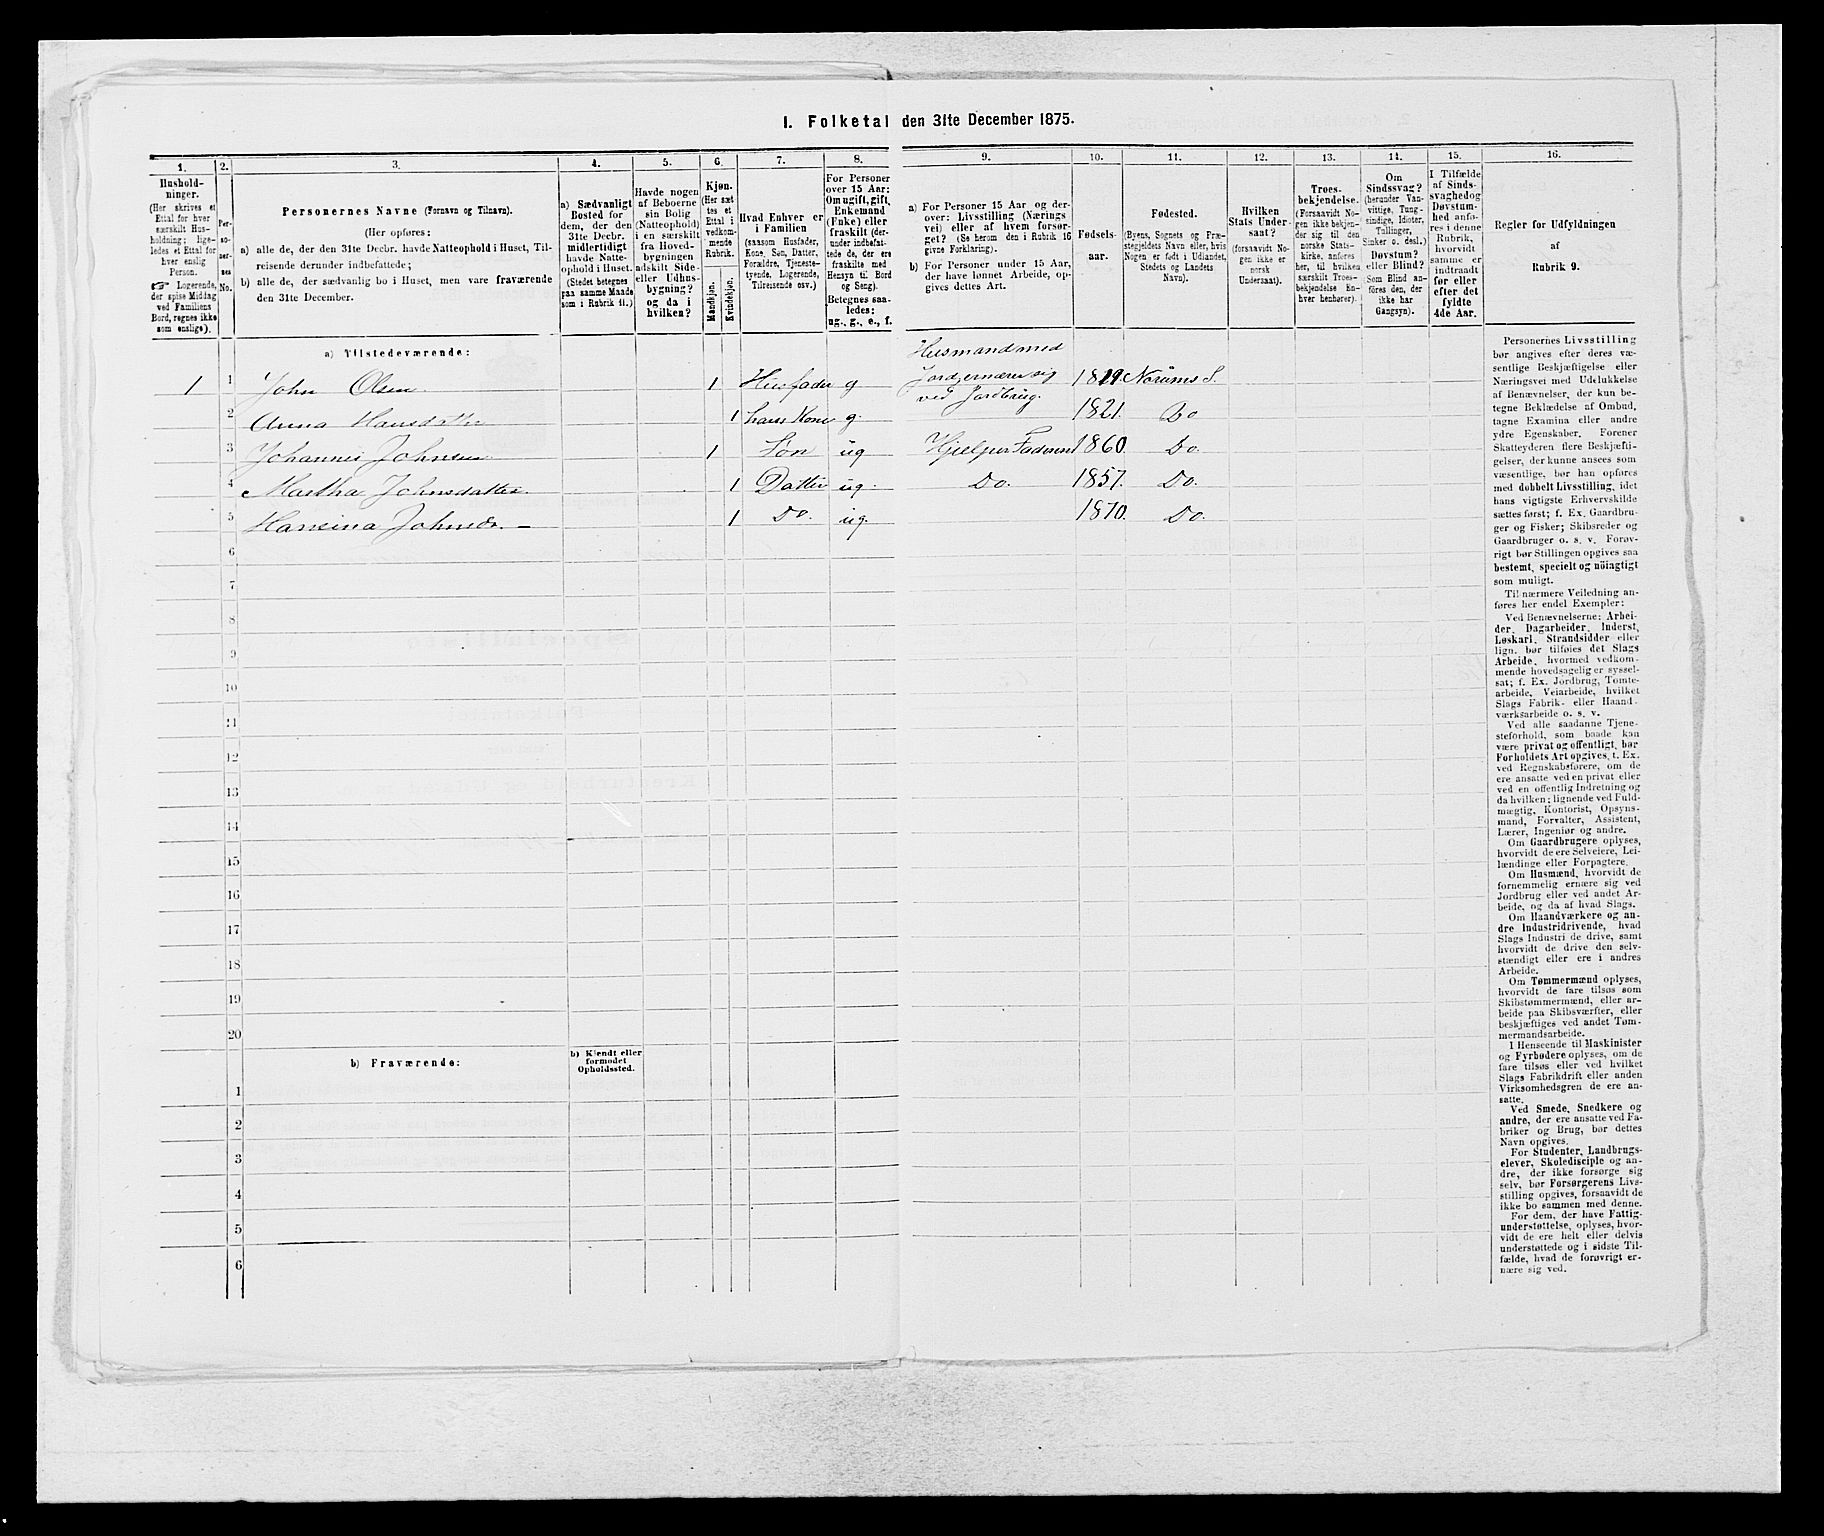 I. Folketal den 31te December 1875.
1.
Hushold-
ninger.
(Her skrives et
Ettal for hver
særskilt Hus-
holdning; lige-
ledes et Ettal for
hver enslig
Person.
☞ Logerende,
der spise Middag
ved Familiens
Bord, regnes ikke
som enslige).
2.
Per-
so-
ner-
nes
No.
3.
Personernes Navne (Fornavn og Tilnavn).
(Her opføres:
a) alle de, der den 31te Decbr. havde Natteophold i Huset, Til-
reisende derunder indbefattede;
b) alle de, der sædvanlig bo i Huset, men vare fraværende
den 31te December.
4.
a) Sædvanligt
Bosted for
dem, der den
31te Decbr.
midlertidigt
havde Natte-
ophold i Huset.
(Stedet betegnes
paa samme Maade
som i Rubrik 11.)
5.
Havde nogen
af Beboerne
sin Bolig
(Natteophold)
i en særskilt
fra Hoved-
bygningen
adskilt Side-
eller Udhus-
bygning?
og da i
hvilken?
6.
Kjøn.
(Her sæt
tes et
Ettal i
vedkom-
mende
Rubrik.
Mandkjøn.
Kvindekjøn.
7.
Hvad Enhver er
i Familien
(saasom Husfader,
Kone, Søn, Datter,
Forældre, Tjeneste-
tyende, Logerende,
Tilreisende osv.)
8.
For Personer
over 15 Aar:
Om ugift, gift,
Enkemand
(Enke) eller
fraskilt (der-
under indbefat-
tede de, der ere
fraskilte med
Hensyn til Bord
og Seng).
Betegnes saa-
ledes:
ug., g., e., f.
9.
a) For Personer 15 Aar og der-
over: Livsstilling (Nærings
vei) eller af hvem forsør-
get? (Se herom den i Rubrik 16
givne Forklaring).
b) For Personer under 15 Aar,
der have lønnet Arbeide, op-
gives dettes Art.
10.
Fødsels-
aar.
11.
Fødested.
(Byens, Sognets og Præ-
stegjeldets Navn eller, hvis
Nogen er født i Udlandet,
Stedets og Landets
Navn).
12.
Hvilken
Stats Under-
saat?
(forsaavidt No-
gen ikke er
norsk
Undersaat).
13.
Troes-
bekjendelse.
(Forsaavidt No-
gen ikke bekjen-
der sig til den
norske Stats-
kirke, anføres
her, til hvilken
særskilt Troes-
bekjendelse En-
hver henhører).
14.
Om
Sindssvag?
(herunder Van-
vittige, Tung-
sindige, Idioter,
Tullinger,
Sinker o. desl.)
Døvstum?
eller Blind?
Som Blind an-
føres den, der
ikke har
Gangsyn).
15.
I Tilfælde
af Sinds-
svaghed og
Døvstum-
hed anfø-
res i denne
Rubrik,
hvorvidt
samme er
indtraadt
før eller
efter det
fyldte
4de Aar.
16.
Regler for Udfyldningen
af
Rubrik 9.
a) Tilstedeværende:
1 1 John Olsen 1 Husfader g Husmand med
Jord, ernærer sig
ved Jordbrug. 1819. Norums S.
2 Anna Hansdatter 1 hans Kone g. 1821. Do
3 Johannes Johnsen 1 Søn ug Hjelper Faderen 1860. Do.
4 Martha Johnsdatter. 1 Datter ug. Do. 1857. Do.
5 Hansina Johnsdr. — 1 Do. ug. 1870. Do.
6
7
8
9
10
11
12
13
14
15
16
17
18
19
20
b) Fraværende:
b) Kjendt eller
formodet
Opholdssted.
1
2
3
4
5
6
Personernes Livsstilling
bør angives efter deres væ-
sentlige Beskjæftigelse eller
Næringsvei med Udelukkelse
af Benævnelser, der kun be-
tegne Beklædelse af Ombud,
tagne Examina eller andre
ydre Egenskaber. Forener
Skatteyderen flere Beskjæfti-
gelser, der kunne ansees som
væsentlige, bør han opføres
med dobbelt Livsstilling, idet
hans vigtigste Erhvervskilde
sættes først; f. Ex. Gaardbru-
ger og Fisker; Skibsreder og
Gaardbruger o. s. v. Forøv-
rigt bør Stillingen opgives saa
bestemt, specielt og nöiagtigt
som muligt.
Til nærmere Veiledning an-
føres her endel Exempler:
Ved Benævnelserne: Arbei-
der, Dagarbeider, Inderst,
Løskarl, Strandsidder eller
lign. bør tilføies det Slags
Arbeide, hvormed vedkom-
mende hovedsagelig er syssel-
sat; f. Ex. Jordbrug, Tomte-
arbeide, Veiarbeide, hvilket
Slags Fabrik- eller Haand-
værksarbeide o. s. v.
Ved alle saadanne Tjene-
steforhold, som baade kan
være privat og offentligt, bør
Forholdets Art opgives, t. Ex.
ved Regnskabsførere, om de
ere ansatte ved en privat eller
ved en offentlig Indretning og
da hvilken; lignende ved Fuld-
mægtig, Kontorist, Opsyns-
mand, Forvalter, Assistent,
Lærer, Ingeniør og andre.
Om Gaardbrugere oplyses,
hvorvidt de ere Selveiere, Lei-
lændinge eller Forpagtere.
Om Husmænd, hvorvidt de
fornemmelig ernære sig ved
Jordbrug eller ved andet Ar-
beide, og da af hvad Slags.
Om Haandværkere og an-
dre Industridrivende, hvad
Slags Industri de drive, samt
hvorvidt de drive den selv-
stændigt eller ere i andres
Arbeide.
Om Tømmermænd oplyses,
hvorvidt de fare tilsøs som
Skibstømmermænd, eller ar-
beide paa Skibsværfter, eller
beskjæftiges ved andet Tøm-
mermandsarbeide.
I Henseende til Maskinister
og Fyrbødere oplyses, om de
fare tilsøs eller ved hvilket
Slags Fabrikdrift eller anden
Virksomhedsgren de ere an-
satte.
Ved Smede, Snedkere og
andre, der ere ansatte ved Fa-
briker og Brug, bør dettes
Navn opgives.
For Studenter, Landbrugs-
elever, Skoledisciple og an-
dre, der ikke forsørge sig
selv, bør Forsørgerens Livs-
stilling opgives, forsaavidt de
ikke bo sammen med denne.
For dem, der have Fattig-
understøttelse, oplyses, hvor-
vidt de ere helt eller delvis
understøttede og i sidste Til-
fælde, hvad de forøvrigt er-
nære sig ved.